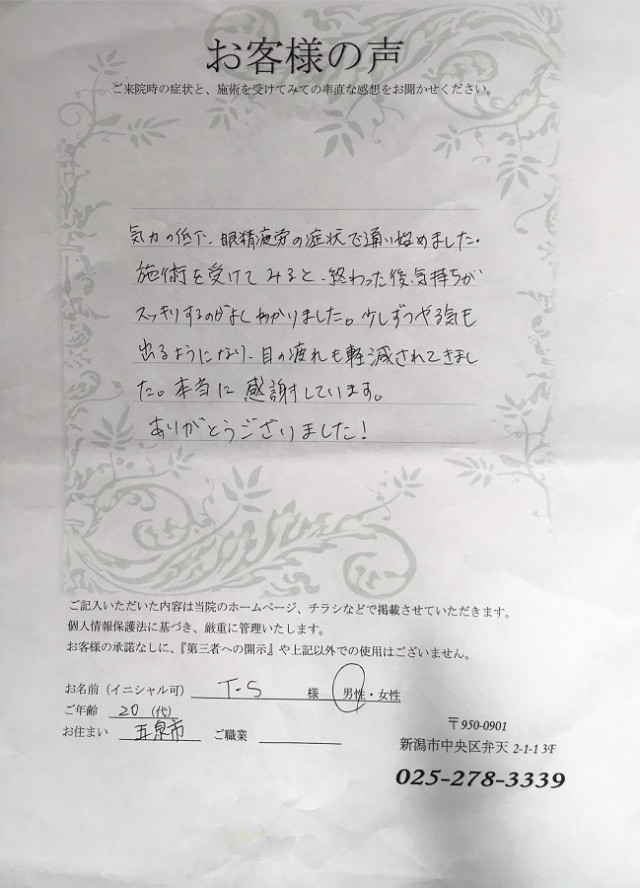 お客様の声
ご来院時の症状と、施術を受けてみての率直な感想をお聞かせください。
気力の低下、眼精疲労の症状で通い始めました。
施術を受けてみると、終わった後気持ちが
スッキリするのがよくわかりました。少しずつやる気も
出るようになり、目の疲れも軽減されてきまし
た。本当に感謝しています。
ありがとうございました!
ご記入いただいた内容は当院のホームページ、チラシなどで掲載させていただきます。
個人情報保護法に基づき、厳重に管理いたします。
お客様の承諾なしに、『第三者への開示』や上記以外での使用はございません。
お名前(イニシャル可) T-S 様 男性・女性
ご年齢 20 (代)
お住まい 五泉市 ご職業
〒950-0901
新潟市中央区弁天 2-1-1 3F
025-278-3339